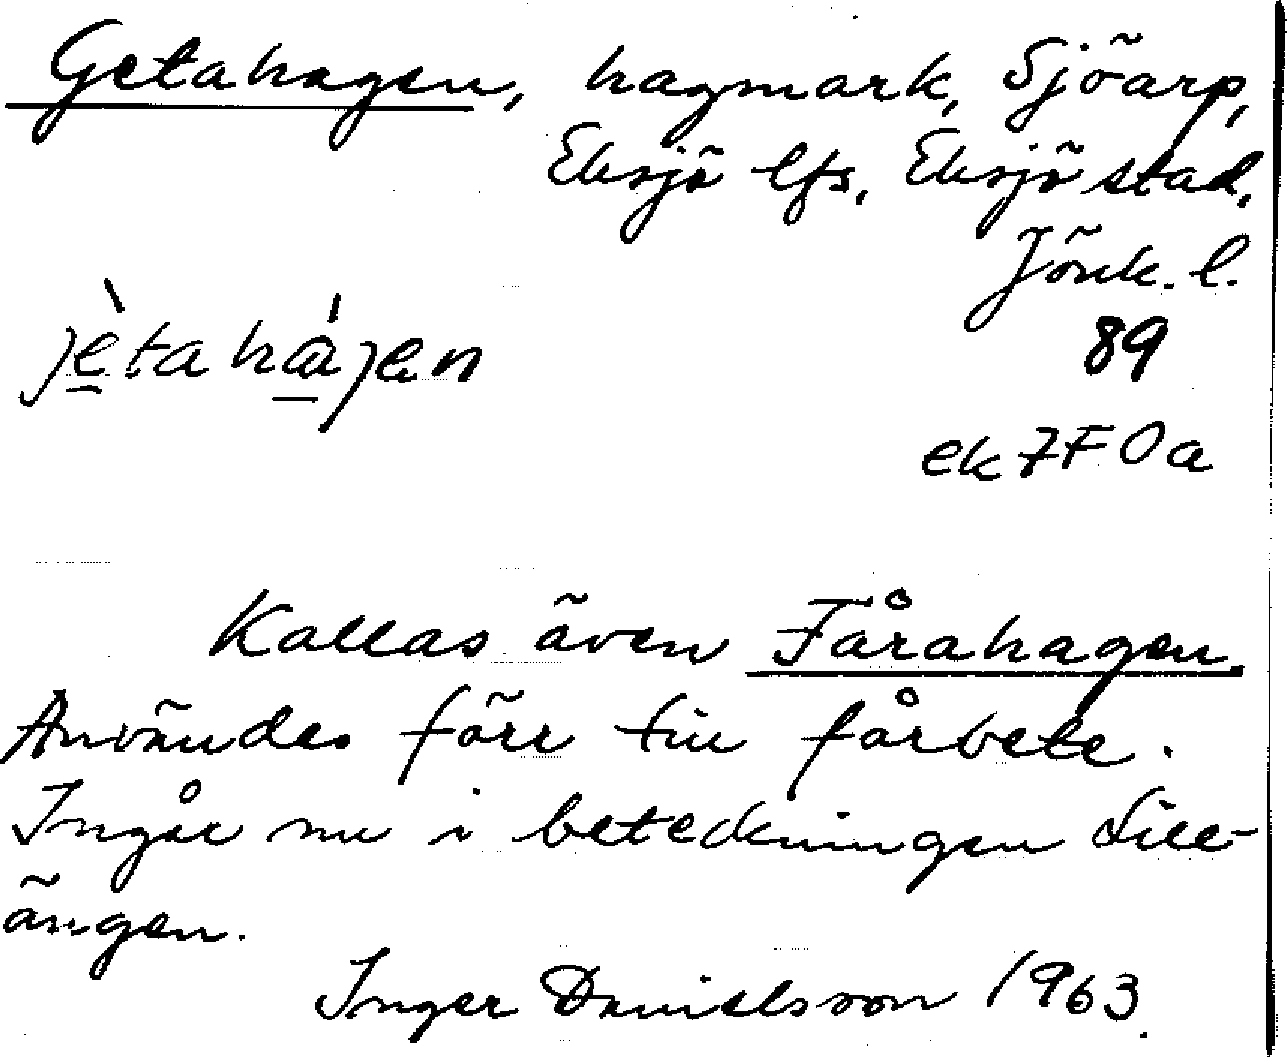 Getahagen, hagmark, Sjöarp,
Eksjö lfs, Eksjö stad,
Jönk. l.
jè̲tahá̲jen
89
ek 7F0a
Kallas även Fårahagen.
Användes förr till fårbete.
Ingår nu i beteckningen Lill-
ängen.
Inger Danielsson 1963.